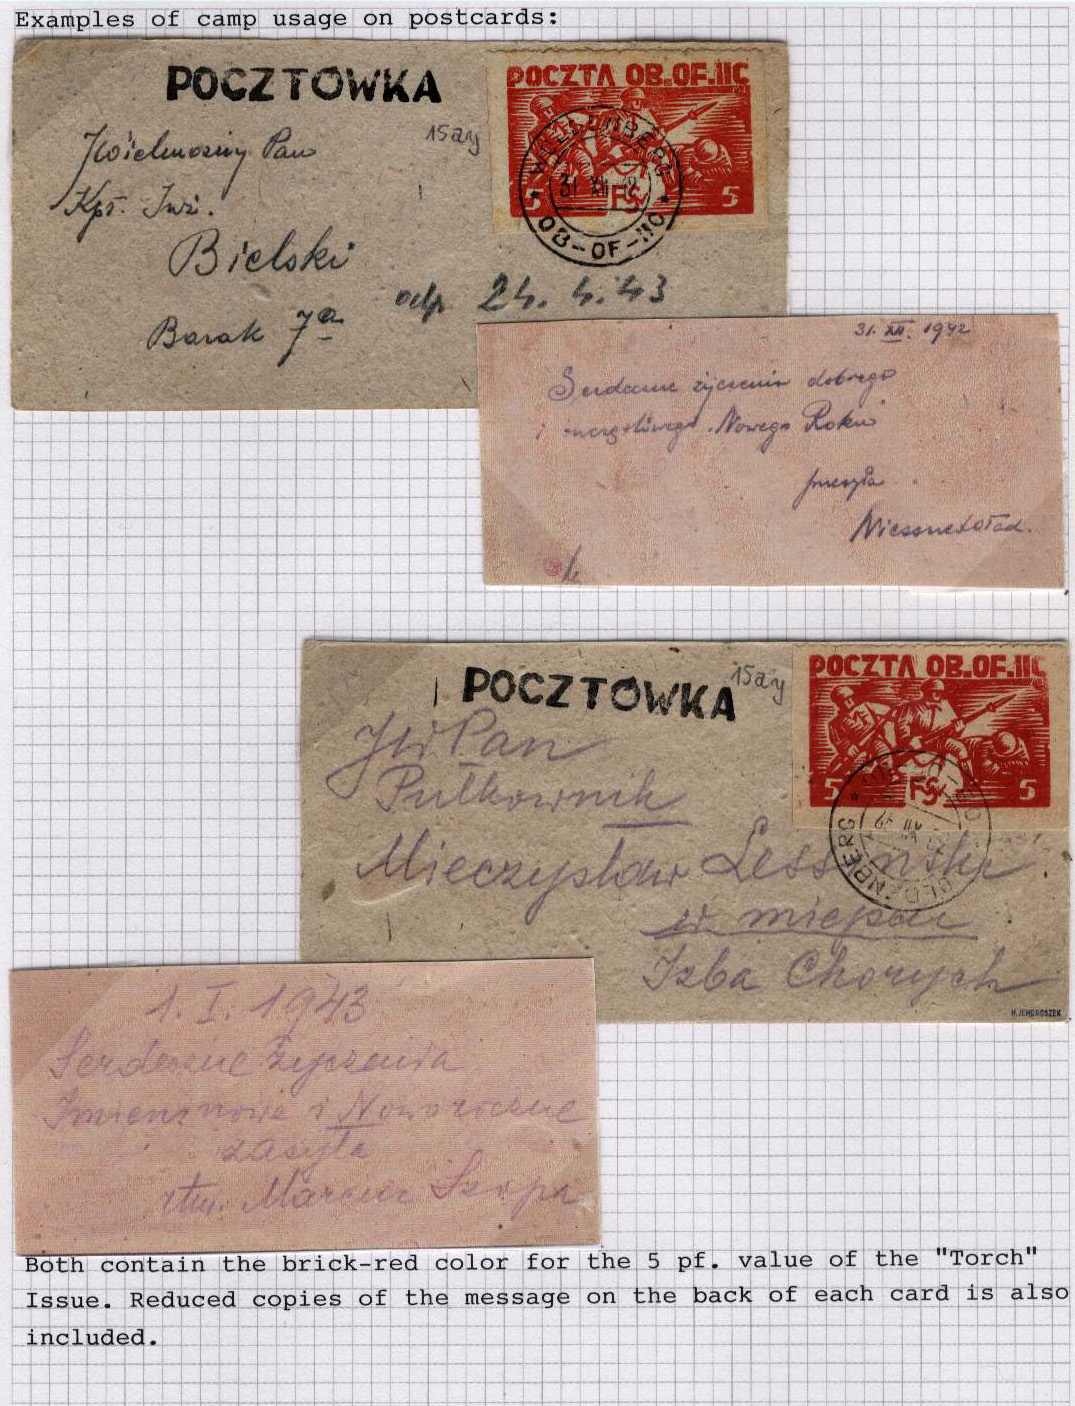 Examples of camp usage on postcards:
POCZTÓWKA
POCZTA OB.OF.IIC
15ay
Wielmożny Pan
Kpt. Inż.
5 FS 5
31 XII 42
OB-OF-IIC
Bielski
odp 24. 4. 43
Barak 7a
31. XII. 1942
Serdeczne życzenia dobrego
i szczęśliwego Nowego Roku
przesyła
POCZTÓWKA
15ay
POCZTA OB.OF.IIC
JW Pan
Pułkownik
5 FS 5
Mieczysław
w miejscu
Izba Chorych
1. I. 1943
Serdeczne życzenia
Imieninowe i Noworoczne
zasyła
rtm. Szopa
Both contain the brick-red color for the 5 pf. value of the "Torch"
Issue. Reduced copies of the message on the back of each card is also
included.